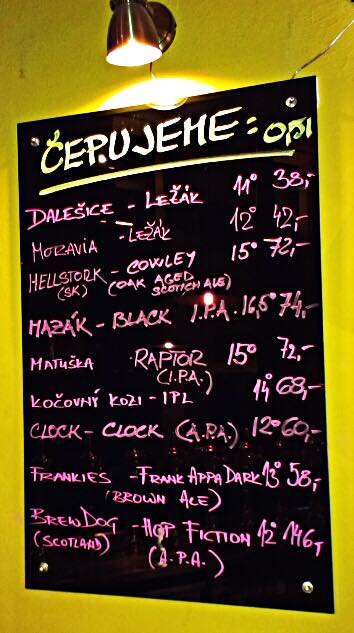 ČEPUJEME: 0,5l
DALEŠICE - LEŽÁK 11° 38,-
MORAVIA - LEŽÁK 12° 42,-
HELLSTORK - COWLEY 15° 72,-
(SK) (OAK AGED SCOTCH ALE)
MAZÁK - BLACK I.P.A. 16,5° 74,-
MATUŠKA RAPTOR 15° 72,-
(I.P.A.)
KOČOVNÝ KOZI - IPL 14° 68,-
CLOCK - CLOCK (A.P.A.) 12° 60,-
FRANKIES - FRANK APPA DARK 13° 58,-
(BROWN ALE)
BREWDOG - HOP FICTION 12° 146,-
(SCOTLAND) (A.P.A.)